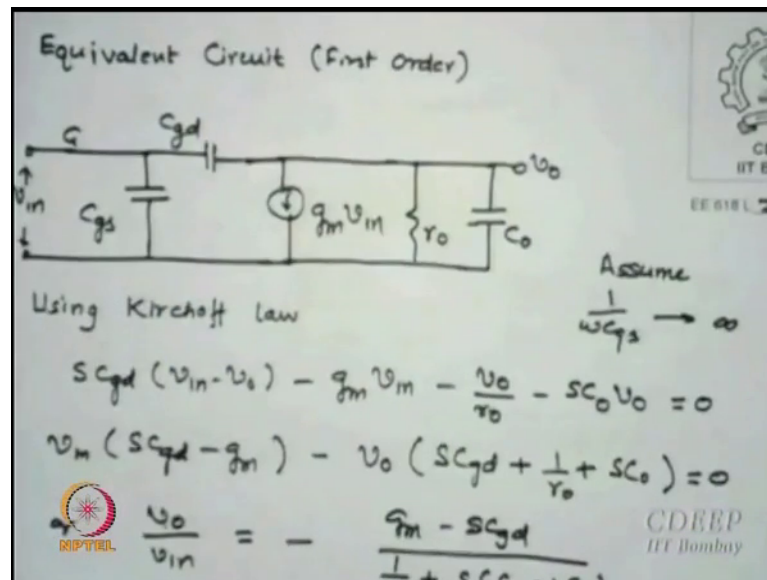 Equivalent Circuit (First Order)
G
Cgd
Vin
Cgs
gm Vin
ro
Co
Vo
EE 618 L
IIT B
Assume
1/ωCgs → ∞
Using Kirchoff Law
SCgd (Vin - Vo) - gm Vin - Vo/ro - SCo Vo = 0
Vin (SCgd - gm) - Vo (SCgd + 1/ro + SCo) = 0
Vo/Vin = - (gm - SCgd)/
NPTEL
CDEEP
IIT Bombay